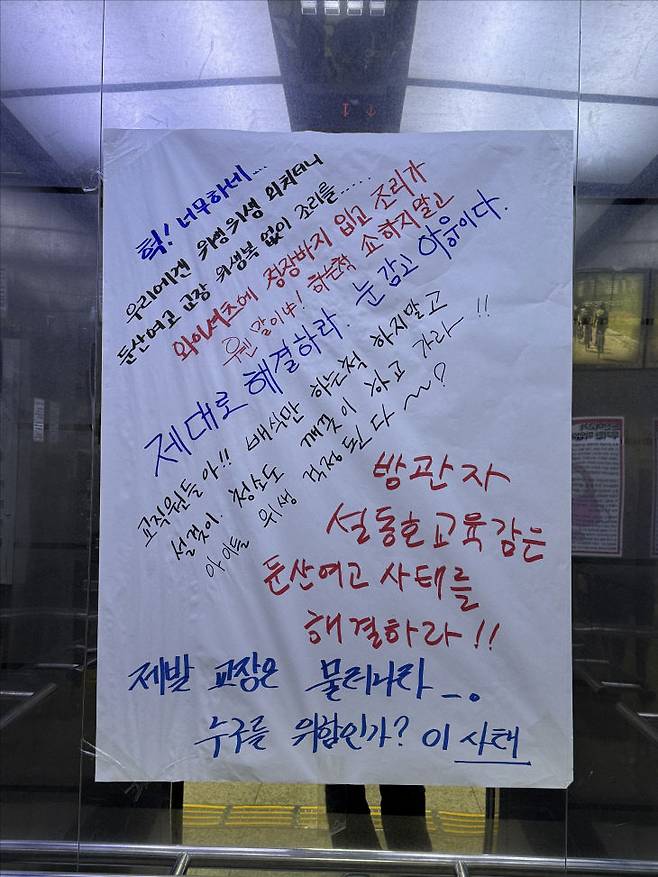 헉! 너무하네....
우리에겐 위생위생 외치더니
둔산여고 교장 위생복 없이 조리를.....
와이셔츠에 정장바지 입고 조리가
웬 말이냐! 하는척 쇼 하지말고
제대로 해결하라. 눈 감고 아웅이다.
교직원들아!! 배식만 하는척 하지말고
설겆이. 청소도 깨끗이 하고 가라!!
아이들 위생 걱정된다~~!
방관자
설동호교육감은
둔산여고 사태를
해결하라!!
제발 교장은 물러나라_.
누구를 위함인가? 이 사태